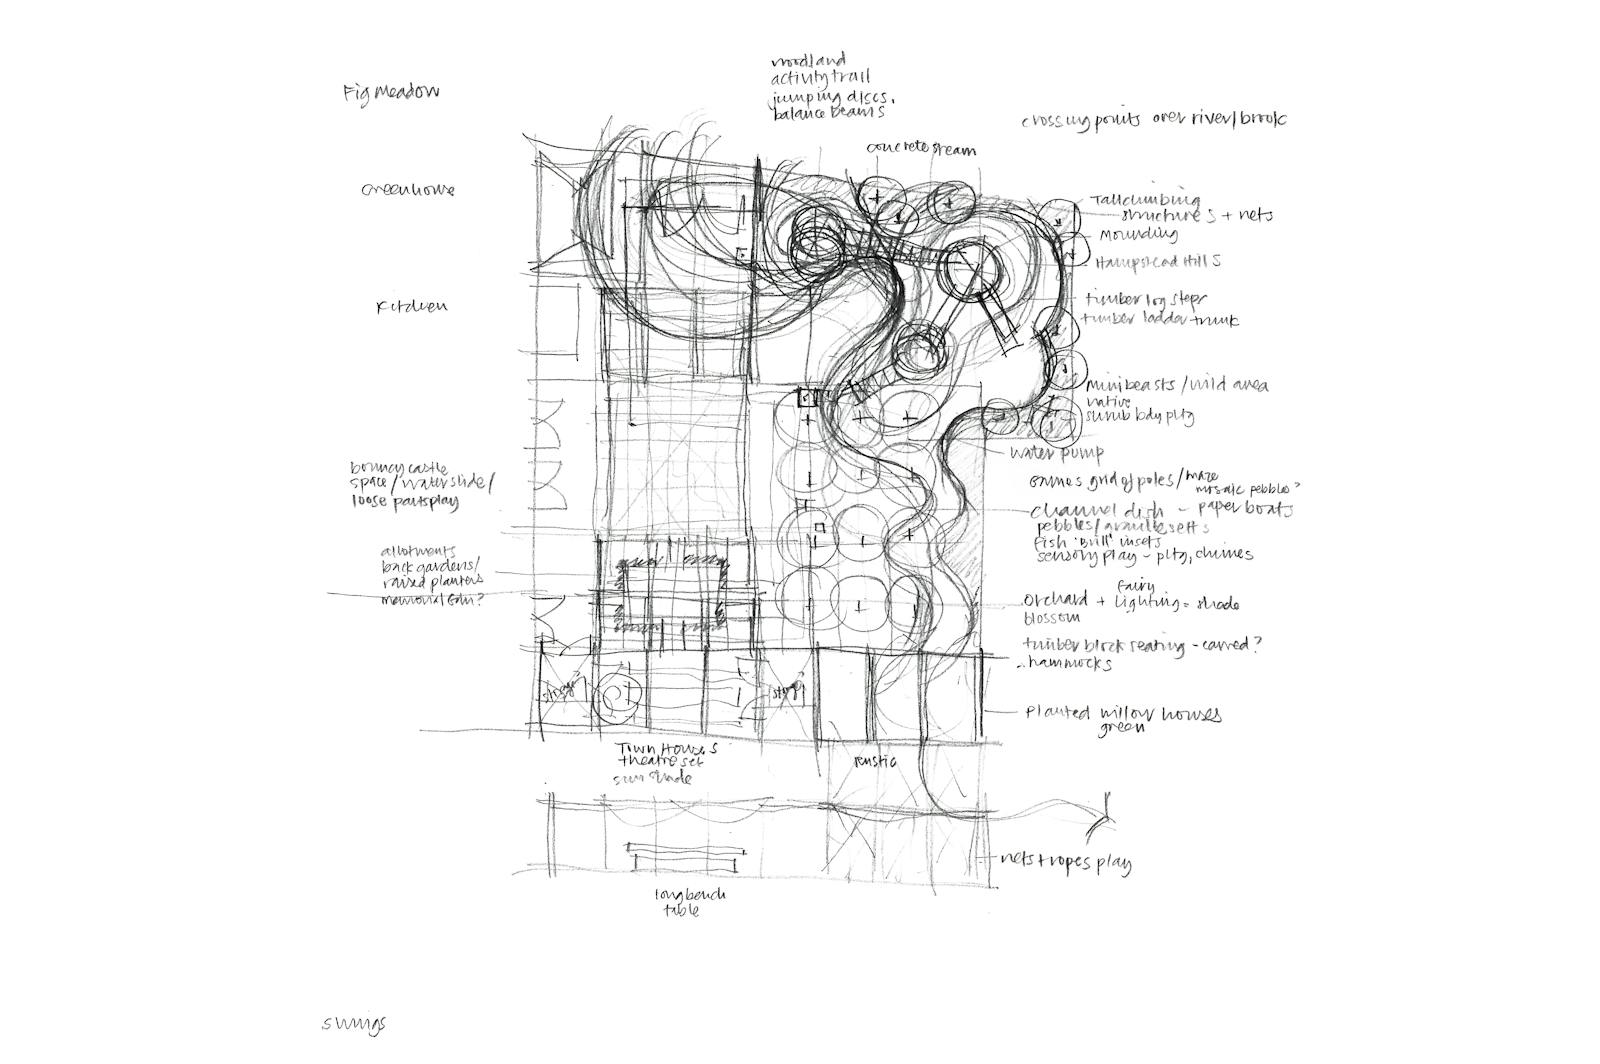 Fig Meadow
woodland
activity trail
jumping discs,
balance beams
crossing points over river/brook
concrete stream
Greenhouse
Tall climbing
structures + nets
Mounding
Hampstead Hills
Kitchen
timber log steps
timber ladder trunk
Minibeasts/wild area
native
shrub bdy pltg
water pump
bouncy castle
space/waterslide/
loose parts play
grid of poles/maze
mosaic pebbles?
channel dish - paper boats
pebbles/granite setts
fish 'Brill' insets
sensory play - pltg, chimes
allotments
back gardens/
raised planters
memorial Gdn?
Fairy
Orchard + lighting = shade
blossom
timber block seating - carved?
hammocks
storage
storage
Planted willow houses
green
Town Houses
theatre set
sun shade
rustic
nets + ropes play
long bench
table
swings